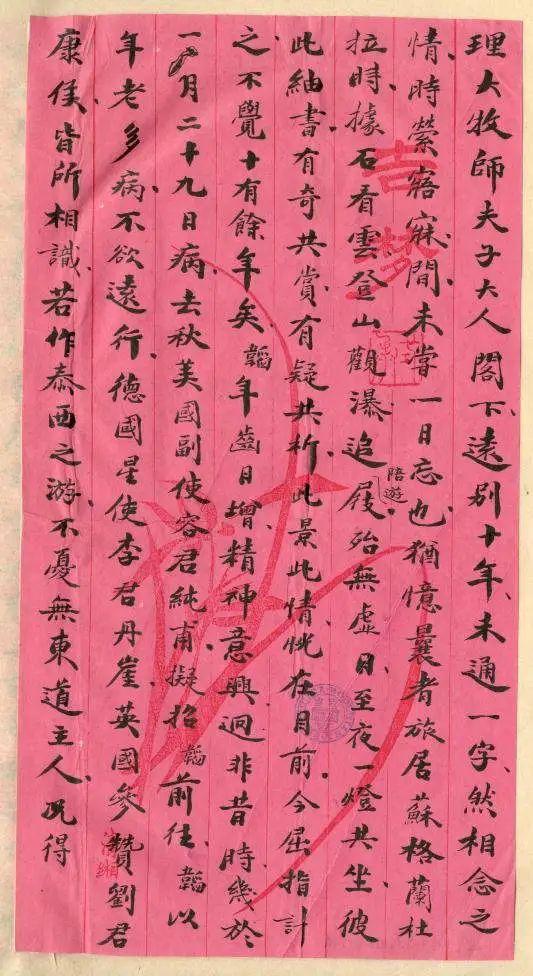 理大牧師夫子大人閣下、遠別十年、未通一字、然相念之
情、時縈寤寐間、未嘗一日忘也、猶憶曩者旅居蘇格蘭杜
拉時、據石看雲、登山觀瀑、追陪遊屐殆無虛日、至夜一燈共坐、彼
此紬書、有奇共賞、有疑共析、此景此情、恍在目前。今屈指計
之、不覺十有餘年矣、韜年齒日增、精神意興迥非昔時、幾於
一月二十九日病、去秋美國副使容君純甫、擬招韜前往、韜以
年老多病、不欲遠行、德國星使李君丹崖、英國參贊劉君
康侯、皆所相識、若作泰西之游、不憂無東道主人、況得
吉夢